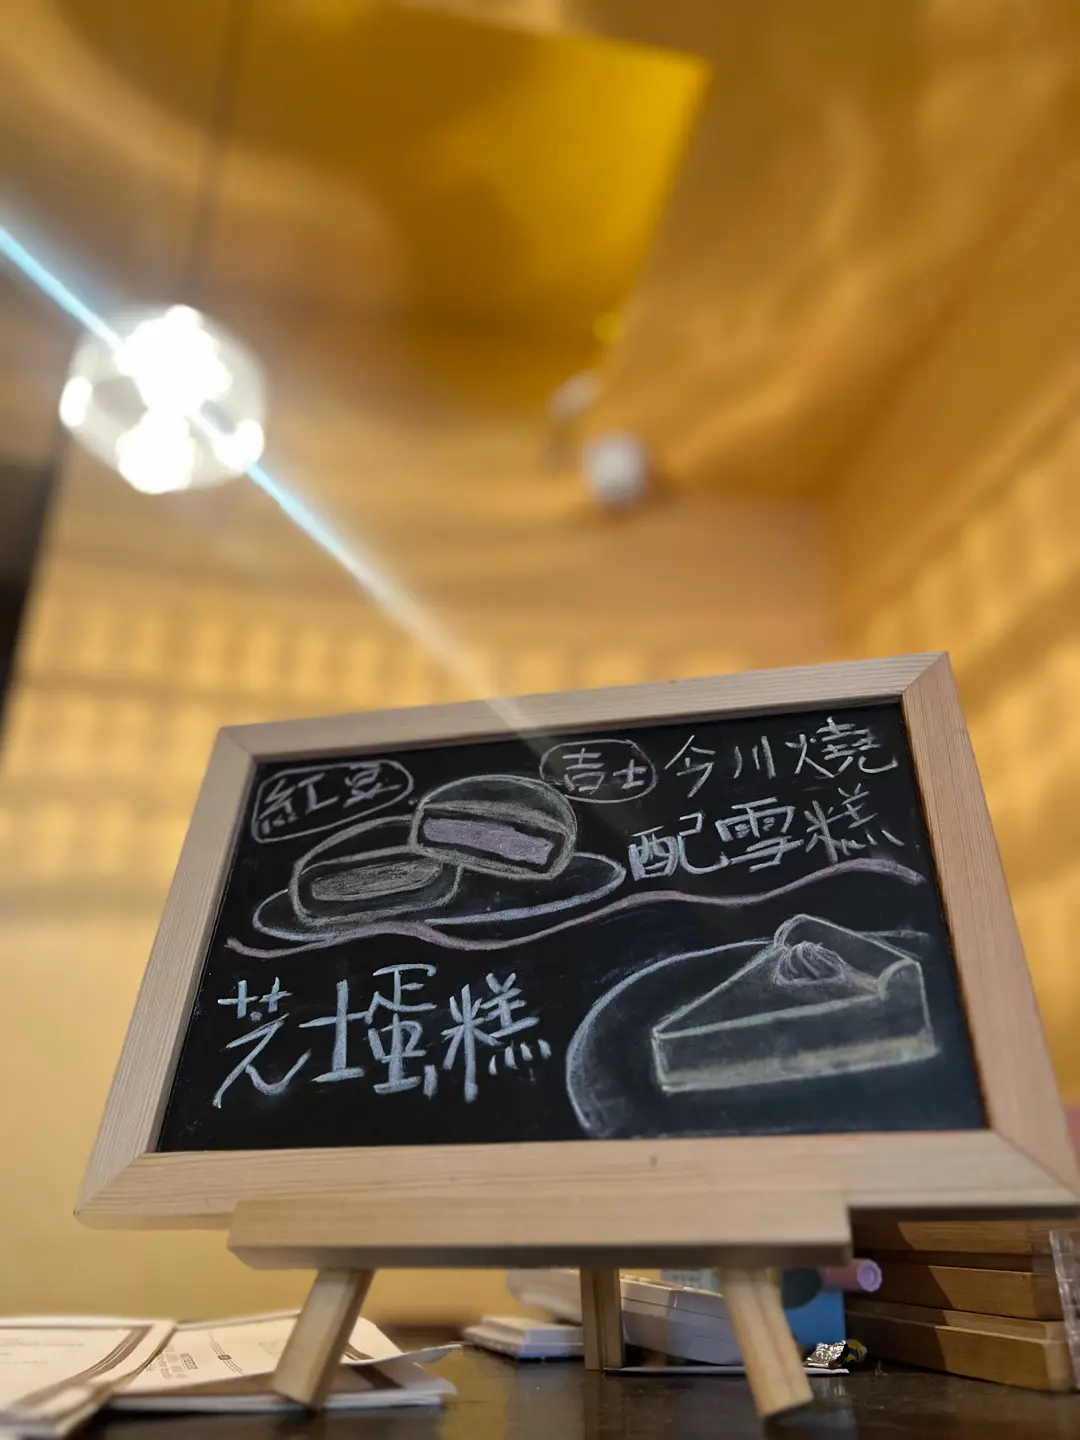 紅豆
吉士 今川燒
配雪糕
芝士蛋糕